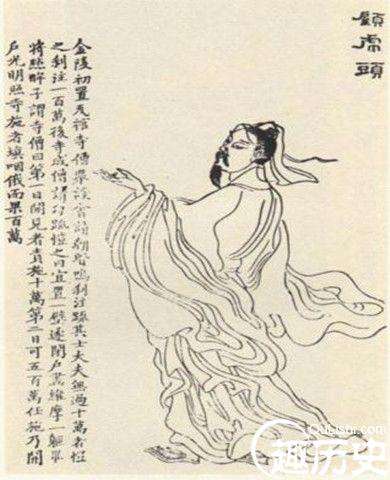 顧虎頭
金陵初置瓦棺寺僧眾設會請朝賢鳴刹注疏其士大夫無過十萬者愷
之刹注一百萬後寺成僧請勾疏愷之曰宜置一壁遂閉戶畫維摩一軀畢
將點眸子謂寺僧曰第一日開見者責施十萬第二日可五百萬任施乃開
戶光明照寺施者填咽俄而果百萬
Qulishi.com
趣历史